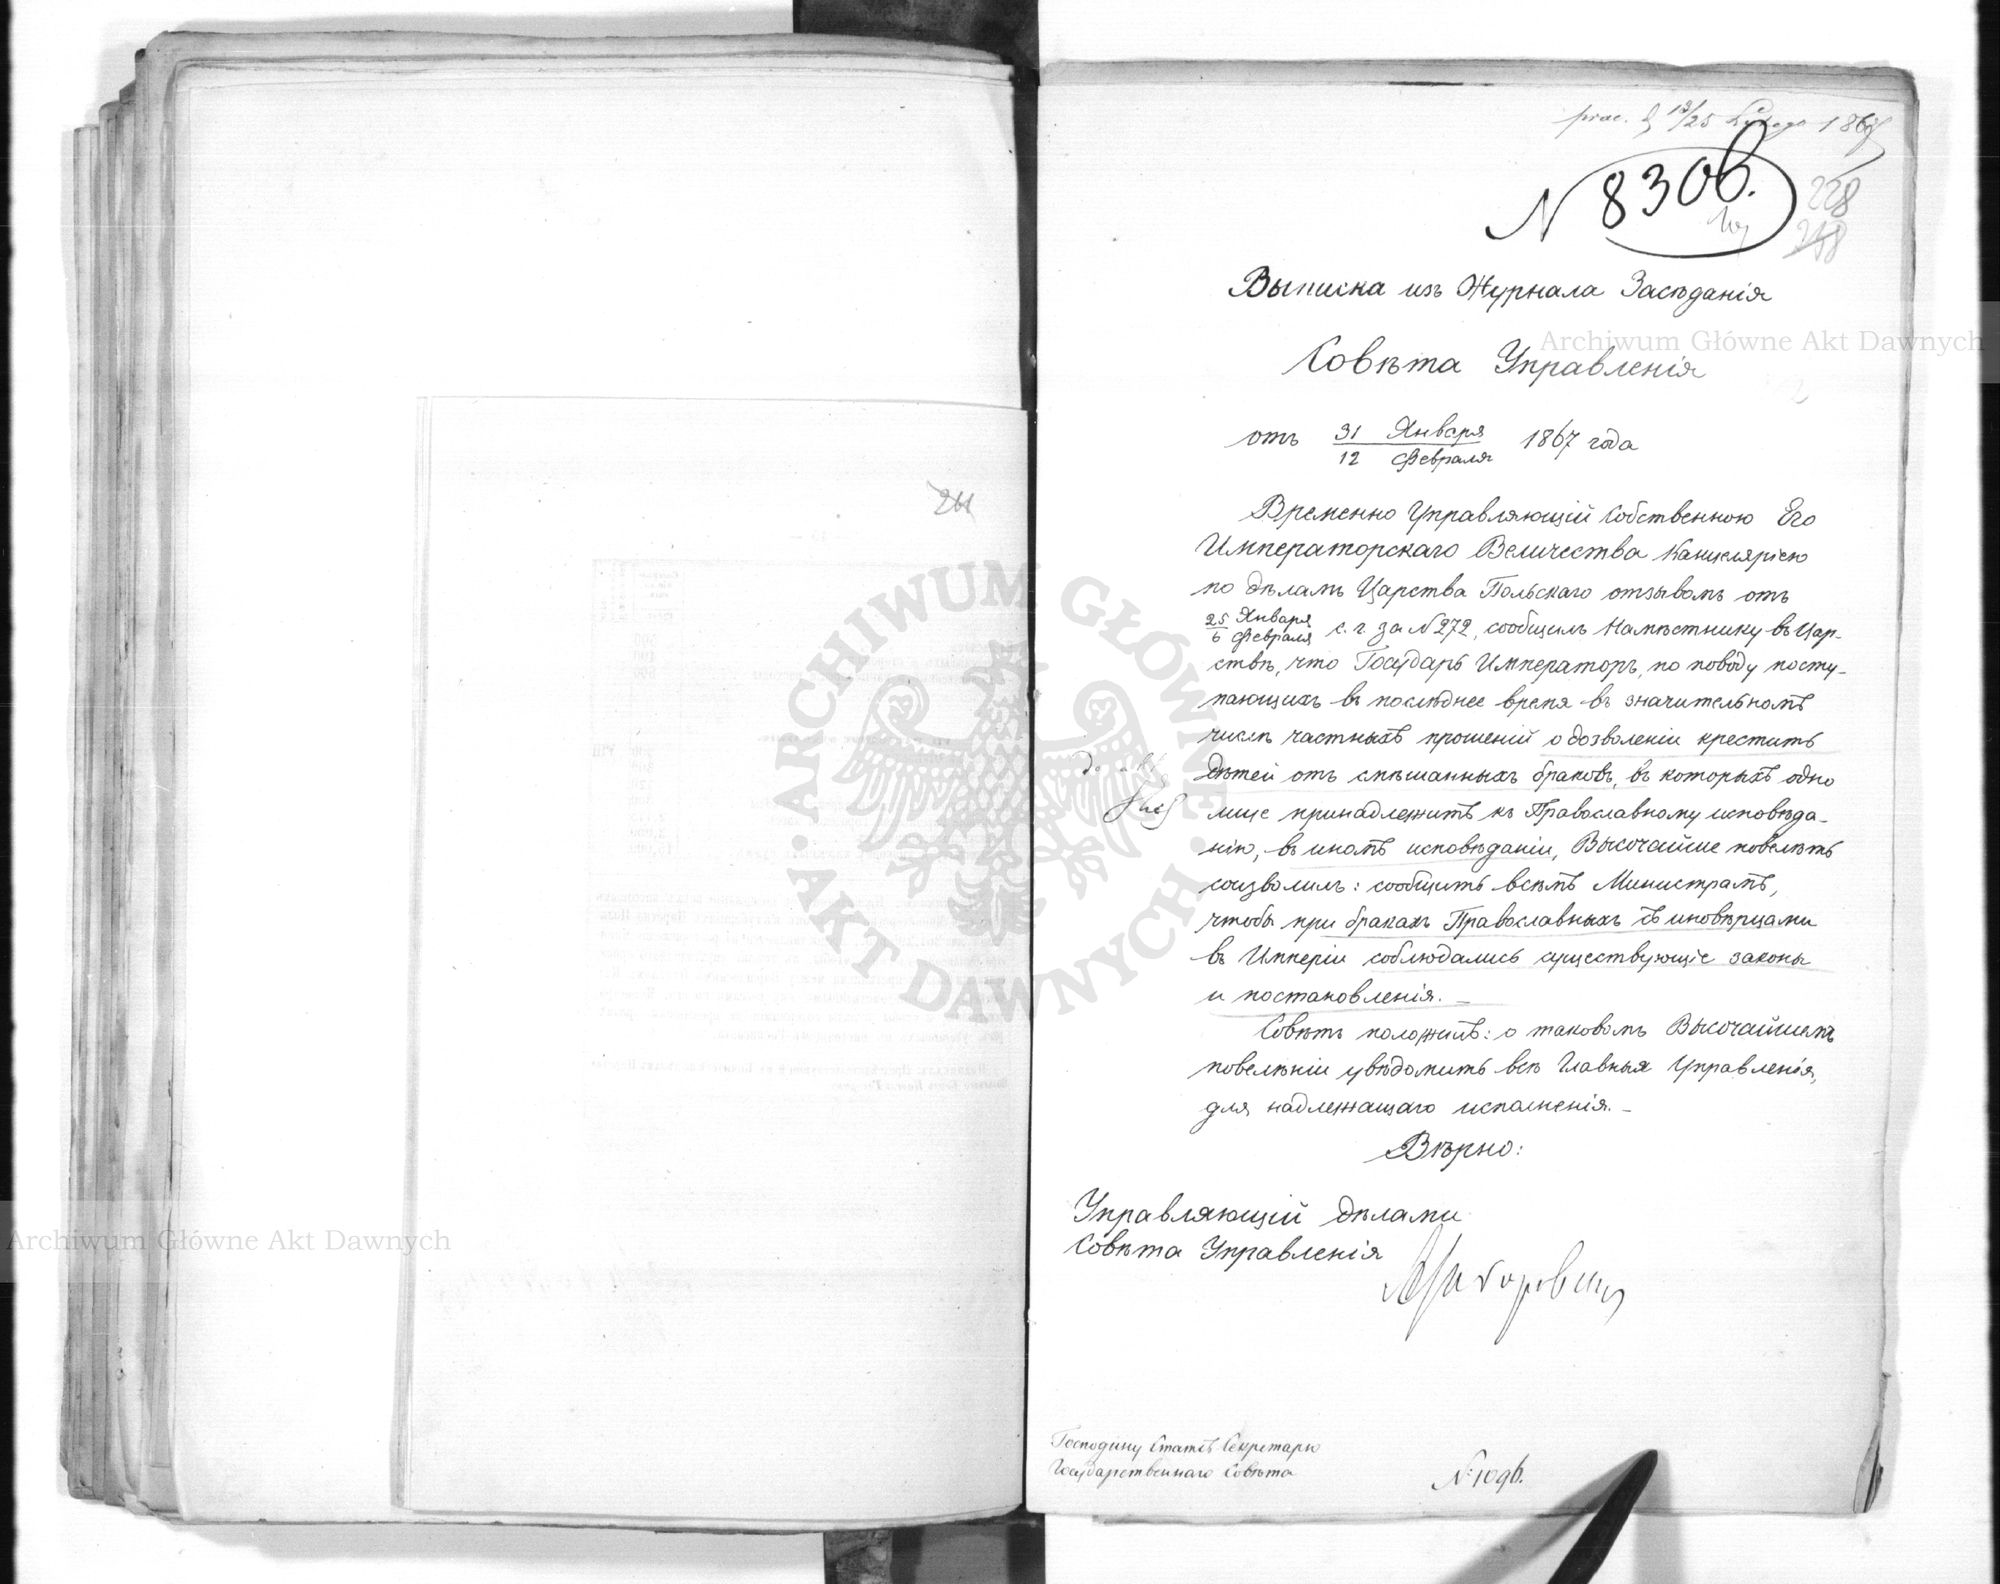 261
prac. d. 13/25 Lutego 1867
N 8306.
228
218
Выписка изъ Журнала Засѣданія
Совѣта Управленія
отъ 31 Января / 12 Февраля 1867 года
Временно Управляющій Собственною Его
Императорскаго Величества Канцеляріею
по дѣламъ Царства Польскаго отзывомъ отъ
25 Января / 6 Февраля с. г. за N 272, сообщилъ Намѣстнику въ Цар-
ствѣ, что Государь Императоръ, по поводу посту-
пающихъ въ послѣднее время въ значительномъ
числѣ частныхъ прошеній о дозволеніи крестить
дѣтей отъ смѣшанныхъ браковъ, въ которыхъ одно
лице принадлежитъ къ Православному исповѣда-
нію, въ иномъ исповѣданіи, Высочайше повелѣть
соизволилъ: сообщить всѣмъ Министрамъ,
чтобы при бракахъ Православныхъ съ иновѣрцами
въ Имперіи соблюдались существующіе законы
и постановленія. —
Совѣтъ положилъ: о таковомъ Высочайшемъ
повелѣніи увѣдомить всѣ Главныя Управленія,
для надлежащаго исполненія. —
Вѣрно:
Управляющій дѣлами
Совѣта Управленія
Господину Статсъ Секретарю
Государственнаго Совѣта
N: 1096.
Archiwum Główne Akt Dawnych
Archiwum Główne Akt Dawnych
ARCHIWUM GŁÓWNE AKT DAWNYCH